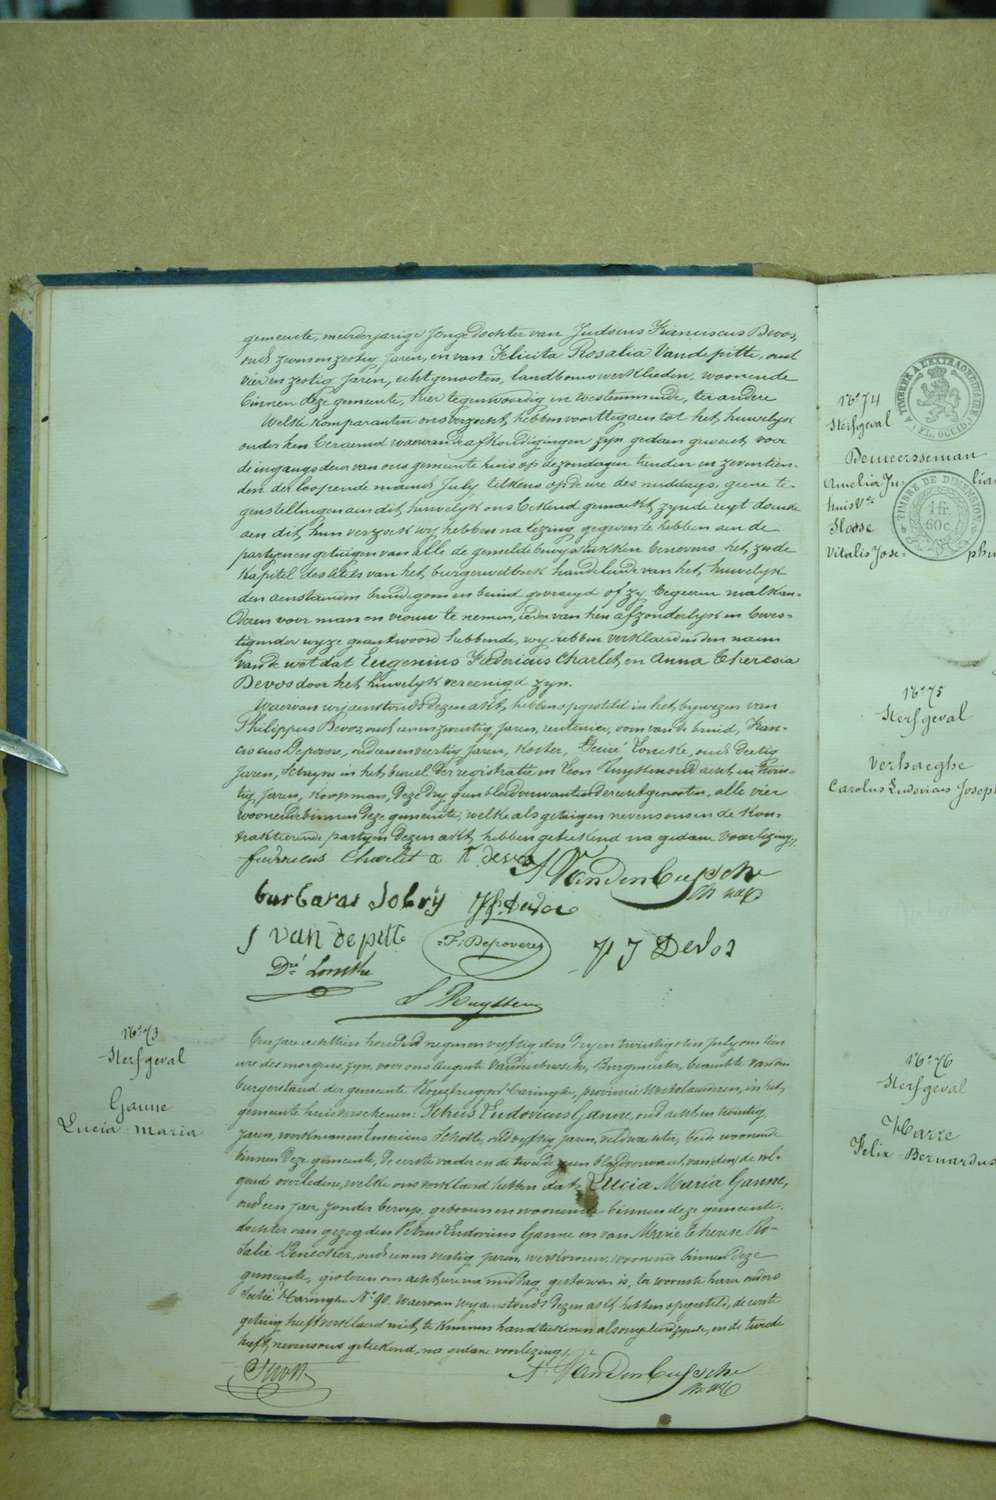 gemeente, meerderjarige Jonge dochter van Judocus Franciscus Devos,
oud zevenenzestig Jaren, en van Felicita Rosalia Vandepitte, oud
vier en zestig Jaren, echtgenooten, landbouwwerklieden, woonende
binnen deze gemeente, hier tegenwoordig en toestemmende, ter andere
Welke komparanten ons verzocht hebben voorttegaen tot het huwelyk
onder hen beraemd waervan de afkondigingen zyn gedaen geweest voor
de ingangsdeur van ons gemeente huis op de zondagen tienden en zeventien-
den der loopende maend July, telkens op de ure des middags, geene te-
genstellingen aen dit huwelyk ons bekend gemaekt zynde regt doende
aen dit hun verzoek wy hebben na lezing gegeven te hebben aen de
partyen en getuigen van alle de gemelde bewysstukken benevens het zesde
kapitel des titels van het burgerwetboek handelende van het huwelyk
den aenstaenden bruidegom en bruid gevraegd of zy begeeren malkan-
deren voor man en vrouw te nemen, ieder van hen afzonderlyk en beves-
tigender wyze geantwoord hebbende, wy hebben verklaerd in den naem
van de wet dat Eugenius Fredericus Charlet, en Anna Theresia
Devos door het huwelyk vereenigd zyn.
Waervan wy aenstonds dezen akt hebben opgesteld in het bywezen van
Philippus Devos, oud zevenenzeventig Jaren, rentenier, oom van de bruid, Fran-
ciscus Deproose, oud eenenveertig Jaren, koster, Désiré Loncke, oud dertig
Jaren, Schryver in het bureel der registratie en Leon Ruyssen oud acht en twin-
tig Jaren, koopman, deze dry geen bloedverwanten der echtgenooten, alle vier
woonende binnen deze gemeente, welke als getuigen nevens ons en de kon-
trakteerende partyen dezen akt hebben geteekend na gedane voorlezing.
fredericus Charlet a t devos A Vandenbussche
barbaras Sobry
J van de pitte F: Depoveres f J Devos
Dré Loncke
L Ruyssen
No 73
Sterfgeval
Ganne
Lucia Maria
Ten jare achttien honderd negenen vyftig den dry en twintigsten July om tien
ure des morgens zyn, voor ons Auguste Vandenbussche, Burgmeester, beambte van den
burgerstand der gemeente Rousbrugge Haringhe, provincie Westvlaenderen, in het
gemeente huis verschenen: Petrus Ludovicus Ganne, oud acht en twintig
Jaren, werkman en Americus Scholte, oud vyftig Jaren, veldwachter, beide woonende
binnen deze gemeente, de eerste vader en de tweede geen bloedverwant van den de vol-
gende overledene, welke ons verklaerd hebben dat Lucia Maria Ganne,
oud een jaer zonder beroep, geboren en woonende binnen deze gemeente
dochter van gezegden Petrus Ludovicus Ganne en van Marie Therese Ro-
salie Denecker, oud een en veertig jaren, werkvrouw, woonende binnen deze
gemeente, gisteren om acht ure na middag gestorven is, ter woonste harer ouders
Sectie Haringhe No 90. Waervan wy aenstonds dezen akt hebben opgesteld, de eerste
getuig heeft verklaerd niet te kunnen handteekenen als ongeleerd zynde, en de tweede
heeft nevens ons geteekend, na gedane voorlezing.
A Vandenbussche
No 74
Sterfgeval
Demeersseman
Amelia Ju- lia
huisve
Flosse
Vitalis Jose- ph
TIMBRE A L'EXTRAORDINAIRE
(FL. OCCID.)
TIMBRE DE DIMENSION
1 fr.
60c.
No 75
Sterfgeval
Verhaeghe
Carolus Ludovicus Joseph
No 76
Sterfgeval
Harre
Felix Bernardus